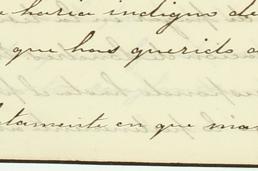 haria indigno de
que has querido a
tamente en que man